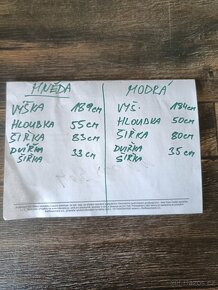 HNĚDÁ
VÝŠKA 189cm
HLOUBKA 55cm
ŠÍŘKA 83cm
DVÍŘKA 33cm
ŠÍŘKA
MODRÁ
VÝŠ. 184cm
HLOUBKA 50cm
ŠÍŘKA 80cm
DVÍŘKA 35cm
ŠÍŘKA